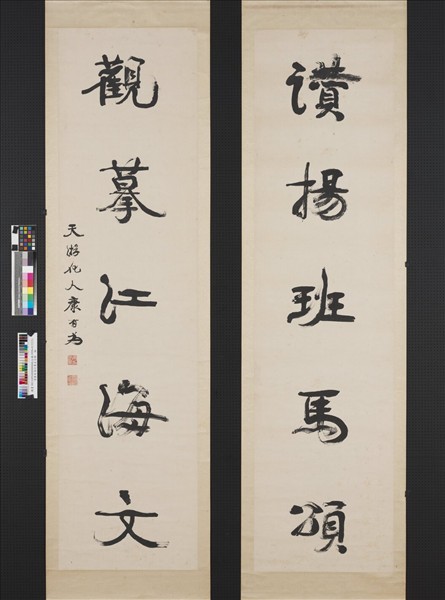 讚揚班馬頌
觀摹江海文
天游化人康有為